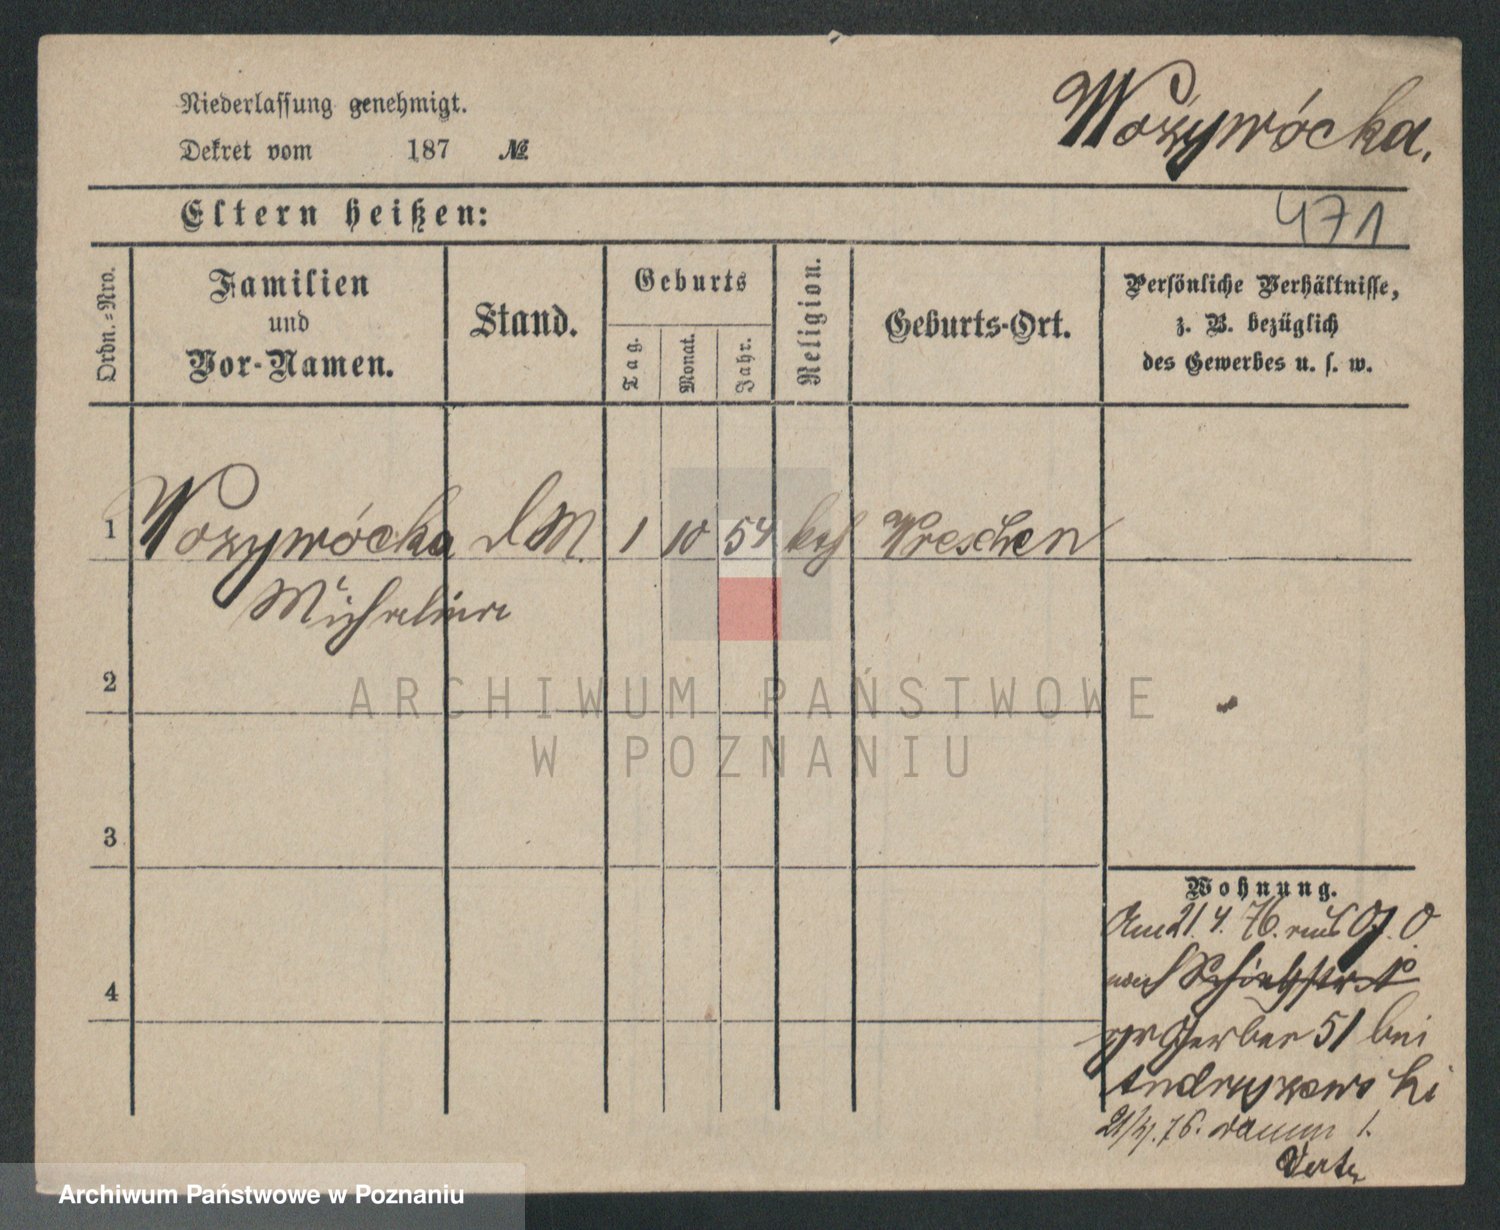 Niederlassung genehmigt.
Dekret vom 187 №
Wozywócka.
Eltern heißen:
471
Ordn.-Nro.
Familien
und
Vor-Namen.
Stand.
Geburts
Tag.
Monat.
Jahr.
Religion.
Geburts-Ort.
Persönliche Verhältnisse,
z. B. bezüglich
des Gewerbes u. s. w.
1 Wozywócka d M. 1 10 54 kath Wreschen
Michalina
2
ARCHIWUM PAŃSTWOWE
W POZNANIU
3
Wohnung.
Am 21. 4. 76. aus O
nach
gr Gerber 51 bei
Andrzyewski
4
21/4. 76. 1.
Archiwum Państwowe w Poznaniu